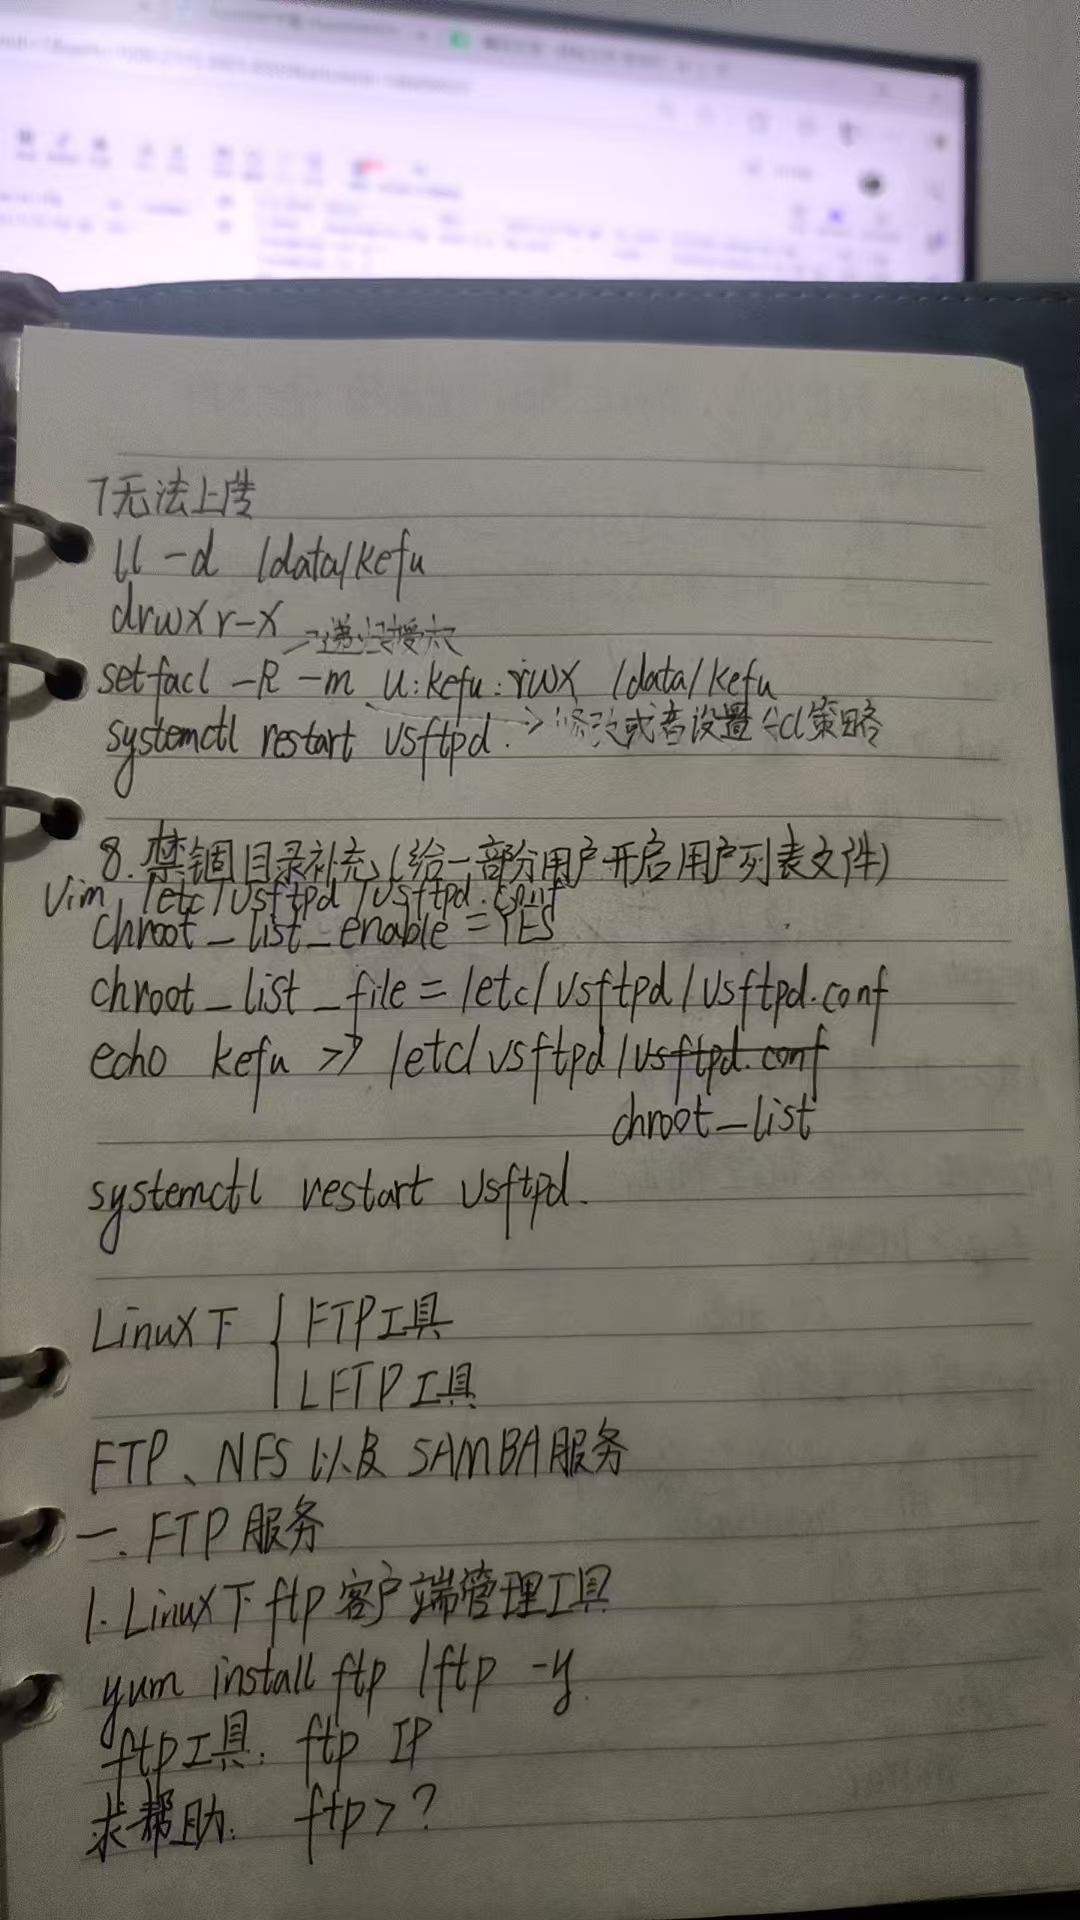 7无法上传
ll -d /data/kefu
drwxr-x
->递归授权
setfacl -R -m u:kefu:rwx /data/kefu
systemctl restart vsftpd.
->修改或者设置acl策略
8.禁锢目录补充(给一部分用户开启用户列表文件)
Vim /etc/vsftpd/vsftpd.conf
chroot_list_enable=YES
chroot_list_file=/etc/vsftpd/vsftpd.conf
echo kefu >> /etc/vsftpd/vsftpd.conf
chroot_list
systemctl restart vsftpd.
Linux下 { FTP工具
LFTP工具
FTP、NFS以及SAMBA服务
一.FTP服务
1.Linux下ftp客户端管理工具
yum install ftp lftp -y
ftp工具: ftp IP
求帮助: ftp>?